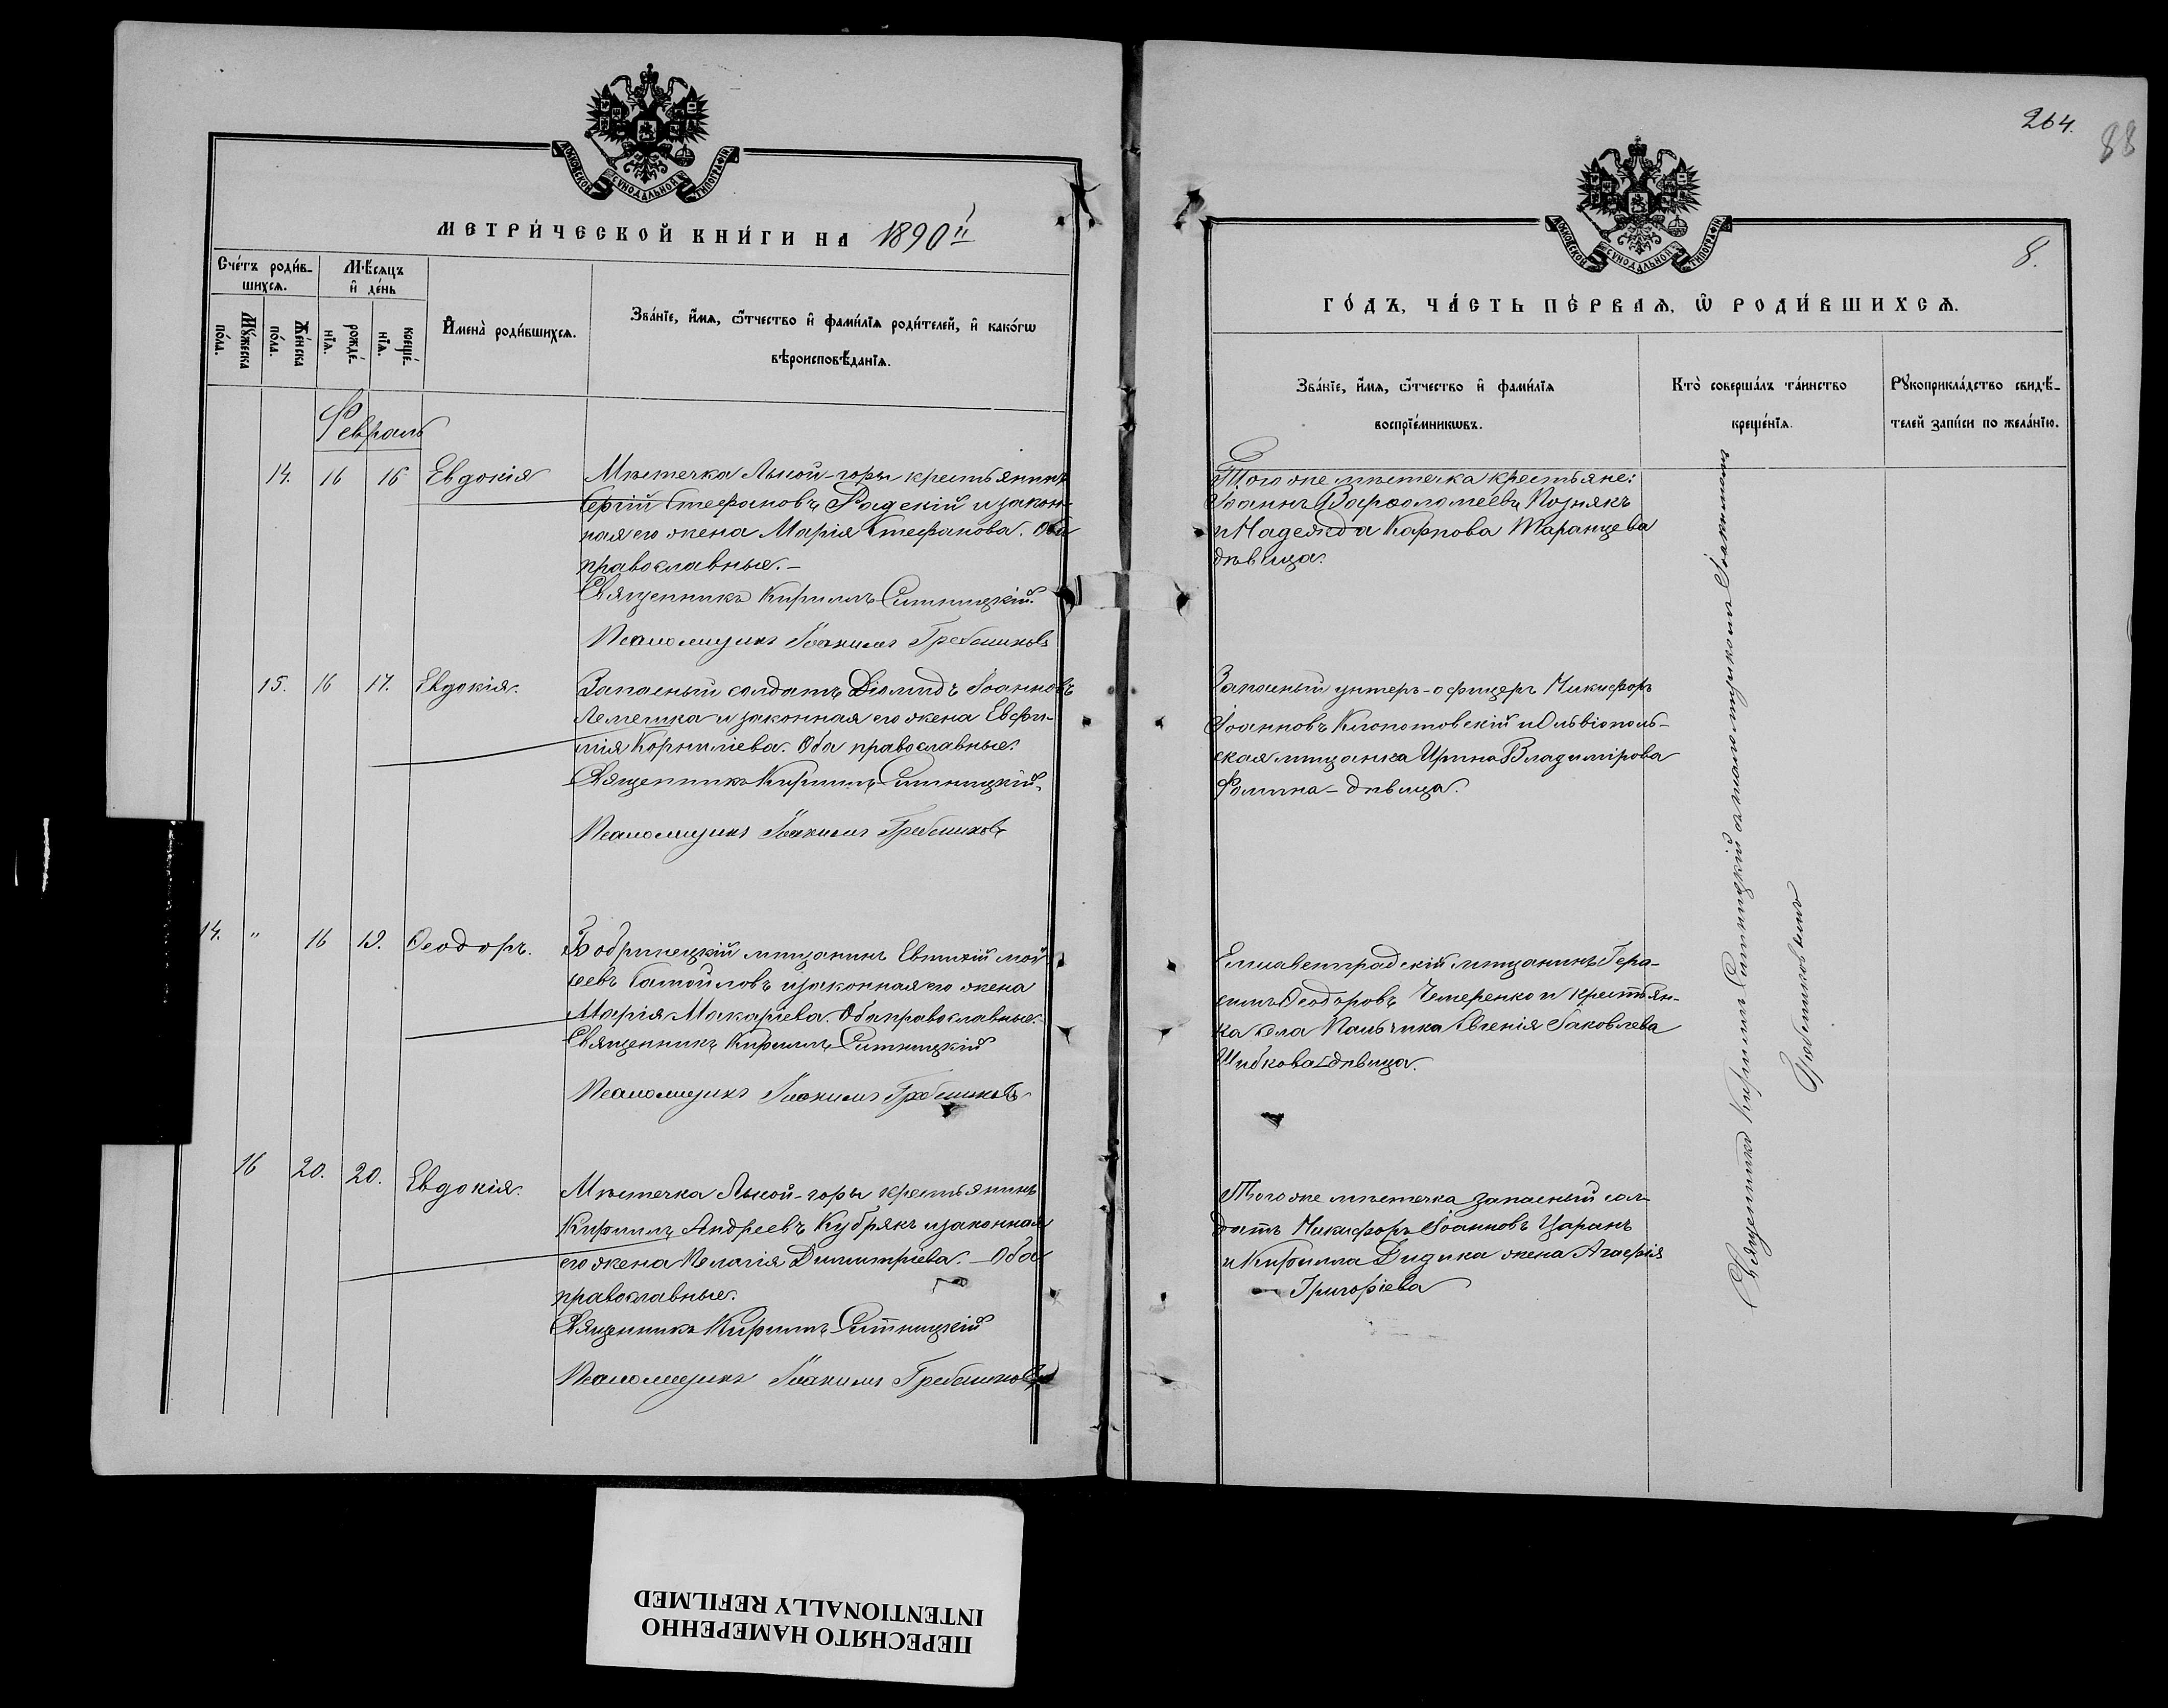 МОСКОВСКОЙ СѴНОДАЛЬНОЙ ТИПОГРАФІИ
МЕТРИ́ЧЕСКОЙ КНИ́ГИ НА 1890й
Сче́тъ роди́в-
шихсѧ.
Мѣ́сѧцъ
и҆ де́нь
Мꙋ́жеска
по́ла.
Же́нска
по́ла.
рожде́-
нїѧ.
креще́-
нїѧ.
И҆мена̀ роди́вшихсѧ.
Зва́нїе, и҆́мѧ, ѻ҆́тчество и҆ фами́лїѧ роди́телей, и҆ како́гѡ
вѣроисповѣ́данїѧ.
Февраль
14. 16 16 Евдокія
Мѣстечка Лысой-горы крестьянинъ
Сергій Стефановъ Радскій и закон-
ная его жена Марія Стефанова. Оба
православные.–
Священникъ Кириллъ Ситницкій.
Псаломщикъ Іоакимъ Гребениковъ
15. 16 17. Евдокія.
Запасный солдатъ Діомидъ Іоанновъ
Лемешка и законная его жена Евфи-
мія Корниліева. Оба православные.
Священникъ Кириллъ Ситницкій.
Псаломщикъ Іоакимъ Гребениковъ
14. " 16 18. Ѳеодоръ.
Бобринецкій мѣщанинъ Евтихій Мой-
сеевъ Самойловъ и законная его жена
Марія Макаріева. Оба православные.
Священникъ Кириллъ Ситницкій
Псаломщикъ Іоакимъ Гребениковъ
16 20. 20. Евдокія.
Мѣстечка Лысой-горы крестьянинъ
Кириллъ Андреевъ Кубрякъ и законная
его жена Пелагія Димитріева. – Оба
православные.
Священникъ Кириллъ Ситницкій
Псаломщикъ Іоакимъ Гребениковъ
264.
88
МОСКОВСКОЙ СѴНОДАЛЬНОЙ ТИПОГРАФІИ
8.
ГО́ДЪ, ЧА́СТЬ ПЕ́РВАѦ, Ѡ҆ РОДИ́ВШИХСѦ.
Зва́нїе, и҆́мѧ, ѻ҆́тчество и҆ фами́лїѧ
воспрїе́мникѡвъ.
Кто̀ соверша́лъ та́инство
креще́нїѧ.
Рꙋкоприкла́дство свидѣ́-
телей за́писи по жела́нїю.
Того же мѣстечка крестьяне:
Іоаннъ Варфоломеевъ Познякъ
и Надежда Карпова Таранцева
дѣвица.
Запасный унтеръ-офицеръ Никифоръ
Іоанновъ Клопотовскій и Ольвіополь-
ская мѣщанка Ирина Владимірова
Фомина – дѣвица.
Елисаветградскій мѣщанинъ Гера-
симъ Ѳеодоровъ Чемеренко и крестьян-
ка села Евгенія Іаковлева
Шибкова дѣвица.
Того же мѣстечка запасный сол-
датъ Никифоръ Іоанновъ Царанъ
и Кирилла Дидика жена Агафія
Григоріева
Священникъ Кириллъ Ситницкій съ псаломщикомъ Іоакимомъ
Гребениковымъ
ПЕРЕСНЯТО НАМЕРЕННО
INTENTIONALLY REFILMED